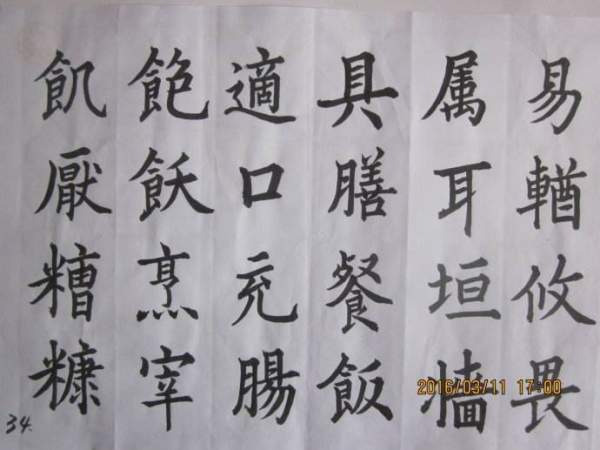 易輶攸畏
属耳垣墙
具膳餐飯
適口充腸
飽飫烹宰
飢厭糟糠
34.
2016/03/11 17:00